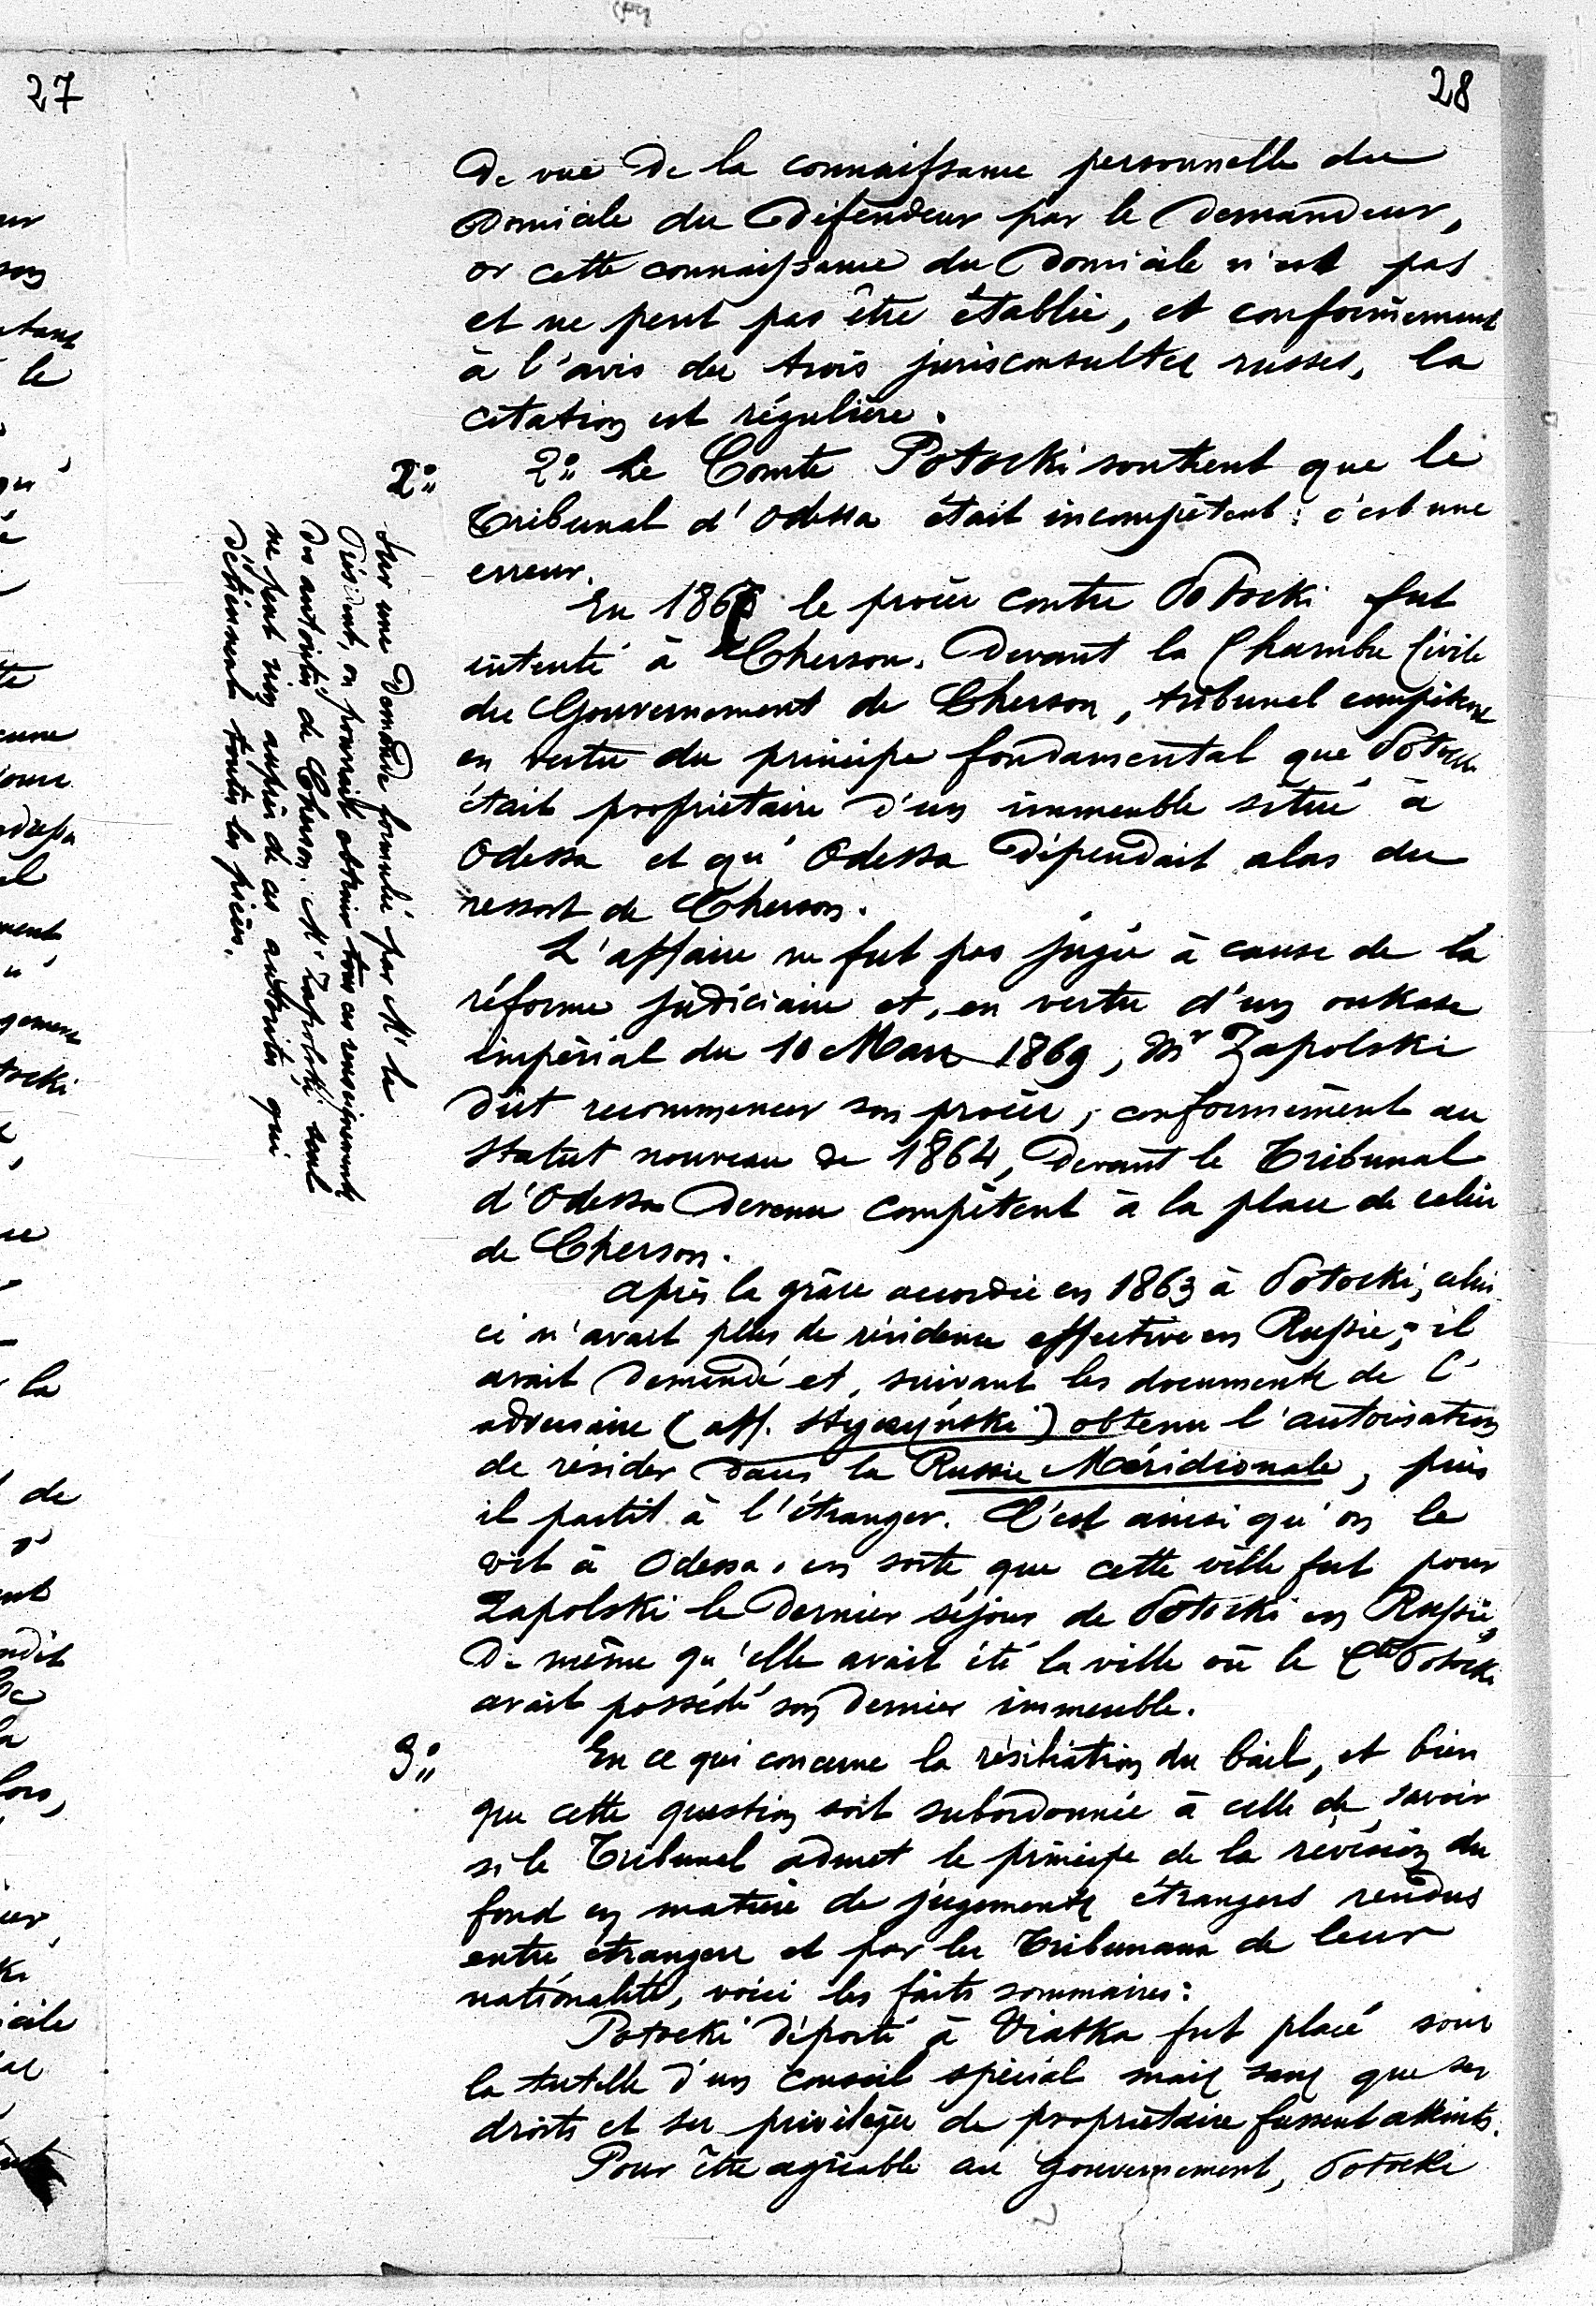 27
28
de vue de la connaissance personnelle du
domicile du défendeur par le demandeur,
or cette connaissance du domicile n'est pas
et ne peut pas être établie, et conformément
à l'avis du trois jurisconsultes russes, la
citation est régulière.
2° 2° Le Comte Potocki soutient que le
Tribunal d'Odessa était incompétent : c'est une
erreur.
En 186 le procès contre Potocki fut
intenté à Cherson. Devant la Chambre Civile
du Gouvernement de Cherson, tribunal compétent
en vertu du principe fondamental que Potocki
était propriétaire d'un immeuble situé à
Odessa et qu'Odessa dépendait alors du
ressort de Cherson.
L'affaire ne fut pas jugée à cause de la
réforme judiciaire et, en vertu d'un oukase
impérial du 10 Mars 1869, Mr Zapolski
dût recommencer son procès, conformément au
statut nouveau de 1864, devant le Tribunal
d'Odessa devenu compétent à la place de celui
de Cherson.
Sur une demande formulée par Mr le
Président, on pourrait obtenir tous ces renseignements
des autorités de Cherson. Mr Zapolski seul
ne peut rien auprès de ces autorités qui
détiennent toutes les pièces.
Après la grâce accordée en 1863 à Potocki, celui
ci n'avait plus de résidence effective en Russie ; il
avait demandé et, suivant les documents de l'
adversaire (aff. Styczyński) obtenu l'autorisation
de résider dans la Russie Méridionale, puis
il partit à l'étranger. C'est ainsi qu'on le
vit à Odessa, en sorte que cette ville fut pour
Zapolski le dernier séjour de Potocki en Russie,
de même qu'elle avait été la ville où le Cte Potocki
avait possédé son dernier immeuble.
3° En ce qui concerne la résiliation du bail, et bien
que cette question soit subordonnée à celle de savoir
si le Tribunal admet le principe de la révision du
fond en matière de jugements étrangers rendus
entre étrangers et par les Tribunaux de leur
nationalité, voici les faits sommaires :
Potocki déporté à Viatka fut placé sous
la tutelle d'un conseil spécial mais sans que ses
droits et ses privilèges de propriétaire fussent atteints.
Pour être agréable au Gouvernement, Potocki